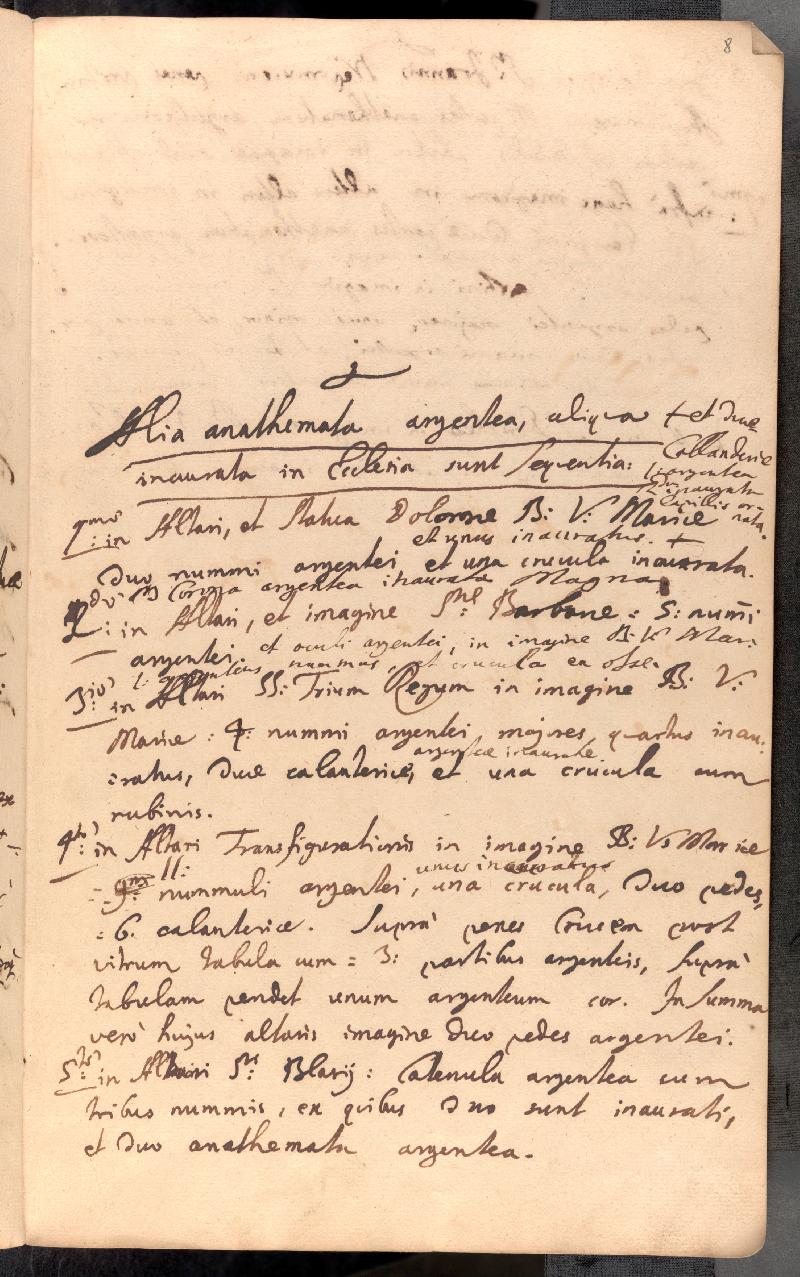 8
Alia anathemata argentea, aliqua + et duæ
Collanderiæ
inaurata in Ecclesia sunt sequentia:
1. argentea
inaurata
lapillis or-
nata.
1mo: in Altari, et statua Dolorosæ B: V: Mariæ
et unus inauratus. +
Duo nummi argentei et una crucula inaurata.
Corona argentea inaurata Magna
2do: in Altari, et imagine Stæ Barbaræ = 5: numi
argentei et oculi argentei, in imagine B: V: Mar:
1: argenteus nummus, et crucula ex osse.
3tio: in Altari SS: Trium Regum in imagine B: V:
Mariæ: 4: nummi argentei majores, quartus inau:
argenteæ inauratæ
:ratus, duæ calanteriæ, et una crucula cum
rubinis.
4to: in Altari Transfigurationis in imagine B: V: Mariæ
11: unus inauratus
nummuli argentei, una crucula, duo pedes,
:6. calanteriæ. Suprà penes Crucem post
vitrum tabula cum = 3: partibus argenteis, suprà
tabulam pendet unum argenteum cor. In summa
verò hujus altaris imagine duo pedes argentei.
5to: in Altari Sti Blasij: Catenula argentea cum
tribus nummis, ex quibus duo sunt inaurati,
et duo anathemata argentea.